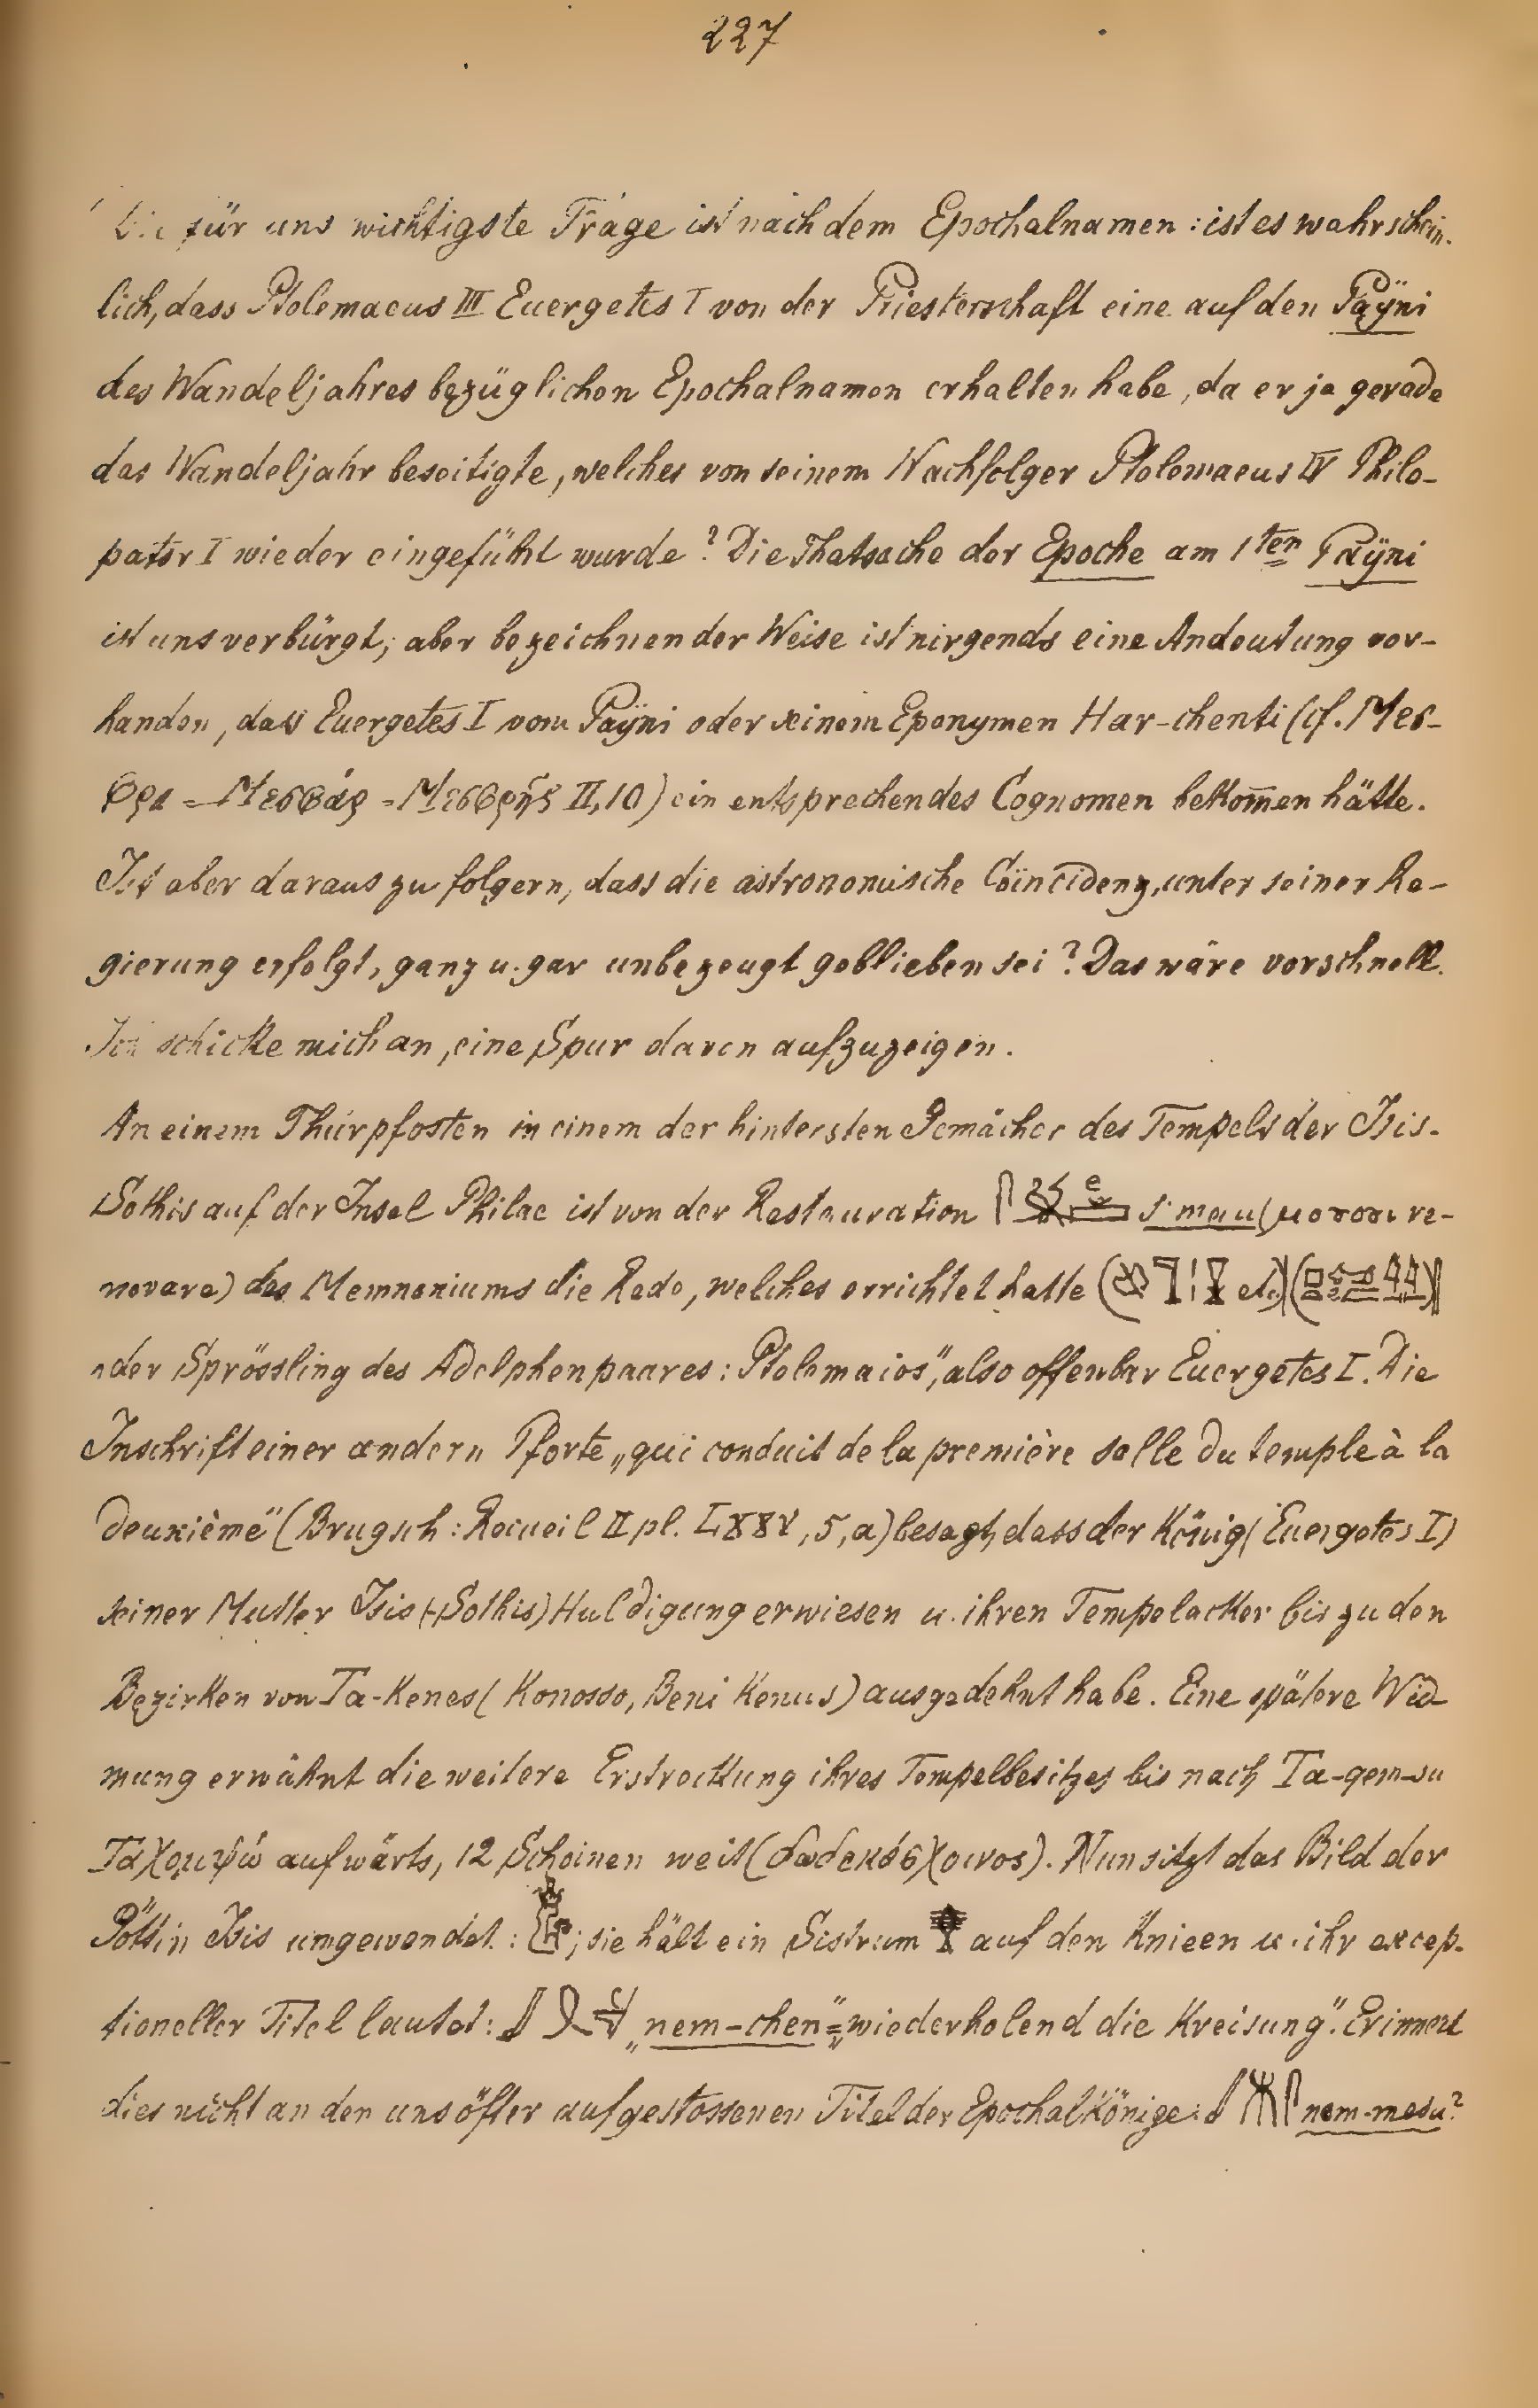 227
Die für uns wichtigste Frage ist nach dem Epochalnamen: ist es wahrschein-
lich, dass Ptolemaeus III Euergetes I von der Priesterschaft eine auf den Paÿni
des Wandeljahres bezüglichen Epochalnamen erhalten habe, da er ja gerade
das Wandeljahr beseitigte, welches von seinem Nachfolger Ptolemaeus IV Philo-
pator I wieder eingeführt wurde? Die Thatsache der Epoche am 1ten Paÿni
ist uns verbürgt; aber bezeichnender Weise ist nirgends eine Andeutung vor-
handen, dass Euergetes I vom Paÿni oder seinem Eponymen Har-chenti (cf. Μεσ-
θρα = Μεσθάς = Μεσθρῆς II, 10) ein entsprechendes Cognomen bekom̄en hätte.
Ist aber daraus zu folgern, dass die astronomische Coïncidenz, unter seiner Re-
gierung erfolgt, ganz u. gar unbezeugt geblieben sei? Das wäre vorschnell.
Ich schicke mich an, eine Spur davon aufzuzeigen.
An einem Thürpfosten in einem der hintersten Gemächer des Tempels der Isis-
Sothis auf der Insel Philae ist von der Restauration s·mau (re-
novare) des Memnoniums die Rede, welches errichtet hatte ( etc)
„der Sprössling des Adelphenpaares: Ptolemaios", also offenbar Euergetes I. Die
Inschrift einer andern Pforte „qui conduit de la première salle du temple à la
deuxième" (Brugsch: Recueil II pl. LXXV, 5, a) besagt, dass der König (Euergetes I)
seiner Mutter Isis (-Sothis) Huldigung erwiesen u. ihren Tempelacker bis zu den
Bezirken von Ta-Kenes (Konosso, Beni Kenus) ausgedehnt habe. Eine spätere Wid
mung erwähnt die weitere Erstreckung ihres Tempelbesitzes bis nach Ta-qem-su
Ταχομψώ aufwärts, 12 Schoinen weit (δωδεκάσχοινος). Nun sitzt das Bild der
Göttin Isis umgewendet: ; sie hält ein Sistrum auf den Knieen u. ihr excep-
tioneller Titel lautet: „nem-chen" = „wiederholend die Kreisung". Erinnert
dies nicht an den uns öfter aufgestossenen Titel der Epochalkönige: nem-mesu?